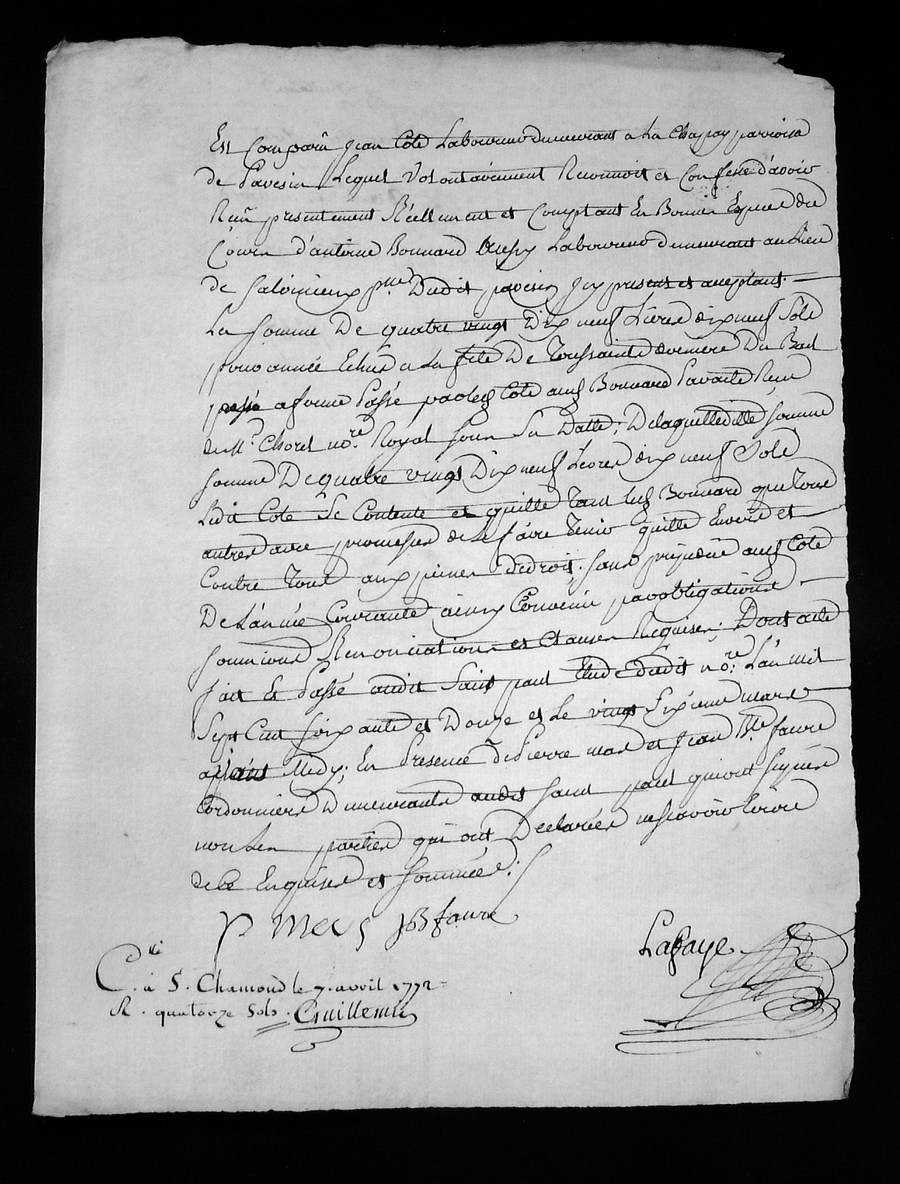 Est Comparu Jean Coté Laboureur demeurant a La Chapay parroisse
de Pavesin Lequel Volontairement Reconnoit et Confesse d'avoir
Reçu presentement Réellement et Comptant En Bonnes Espèces du
Cours d'antoine Bonnard Laboureur demeurant au Lieu
de paroisse Dudit pavesin Icy present et acceptant
La Somme De quatre vingt Dix neuf Livres dix neuf Sols
pour année Echue a La fête De Toussaints derniere Du Bail
a ferme Passé par Ledit Coté audit Bonnard pardevant
Me Chorel nore Royal Sous Sa Datte; De laquelle ditte Somme
Somme De quatre vingt Dix neuf Livres dix neuf Sols
Ledit Coté Se Contente et quitte Tant Ledit Bonnard que Tous
autres avec promesse de Le faire Tenir quitte Envers et
Contre Tous aux peines de droit. Sans préjudice audit Coté
De L'année Courante ainsy Convenu par obligations
Soumissions Renonciations et Clauses Requises; Dont acte
fait et Passé audit Saint paul Etude dudit nore. L'an mil
Sept Cent Soixante et Douze et Le vingt Sixieme mars
Midy; En Presence de Pierre et Jean Bte faure
Cordonniers Demeurants audit Saint paul qui ont Signés
non Les parties qui ont Declarées ne Scavoir Ecrire
de Ce Enquises et Sommées.
P JB faure
Lafaye
C. à S. Chamond le 7. avril 1772
R. quatorze Sols. Guillemin